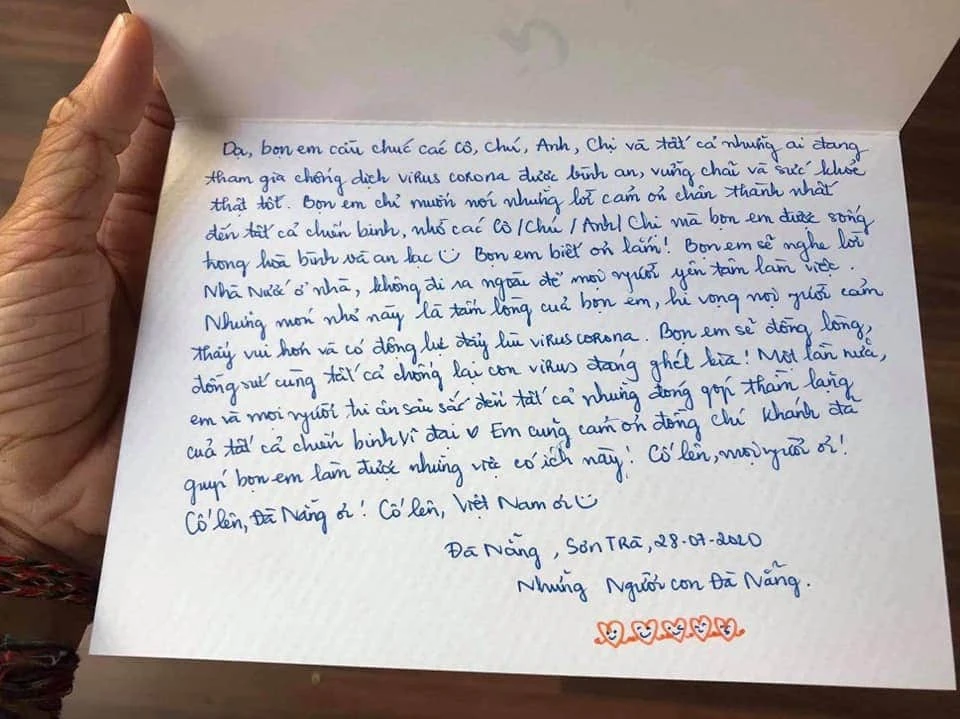 Dạ, bọn em cầu chúc các Cô, Chú, Anh, Chị và tất cả những ai đang
tham gia chống dịch virus corona được bình an, vững chãi và sức khoẻ
thật tốt. Bọn em chỉ muốn nói những lời cảm ơn chân thành nhất
đến tất cả chiến binh, nhờ các Cô/Chú/Anh/Chị mà bọn em được sống
trong hoà bình và an lạc Bọn em biết ơn lắm! Bọn em sẽ nghe lời
Nhà Nước ở nhà, không đi ra ngoài để mọi người yên tâm làm việc.
Những món nhỏ này là tấm lòng của bọn em, hi vọng mọi người cảm
thấy vui hơn và có động lực đẩy lùi virus corona. Bọn em sẽ đồng lòng,
đồng sức cùng tất cả chống lại con virus đáng ghét kia! Một lần nữa,
em và mọi người tri ân sâu sắc đến tất cả những đóng góp thầm lặng
của tất cả chiến binh vĩ đại ♥ Em cũng cảm ơn đồng chí Khánh đã
giúp bọn em làm được những việc có ích này! Cố lên, mọi người ơi!
Cố lên, Đà Nẵng ơi! Cố lên, Việt Nam ơi
Đà Nẵng, Sơn Trà, 28-07-2020
Những Người con Đà Nẵng.